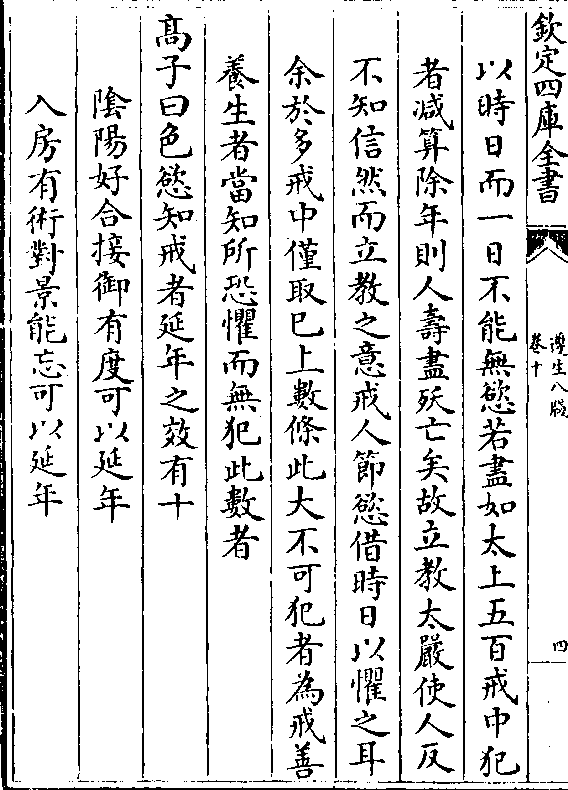 欽定四庫全書
遵生八牋
卷十
四
以時日而一日不能無慾若盡如太上五百戒中犯
者减算除年則人壽盡殀亡矣故立教太嚴使人反
不知信然而立教之意戒人節慾借時日以懼之耳
余於多戒中僅取已上數條此大不可犯者為戒善
養生者當知所恐懼而無犯此數者
高子曰色慾知戒者延年之效有十
隂陽好合接御有度可以延年
入房有術對景能忘可以延年